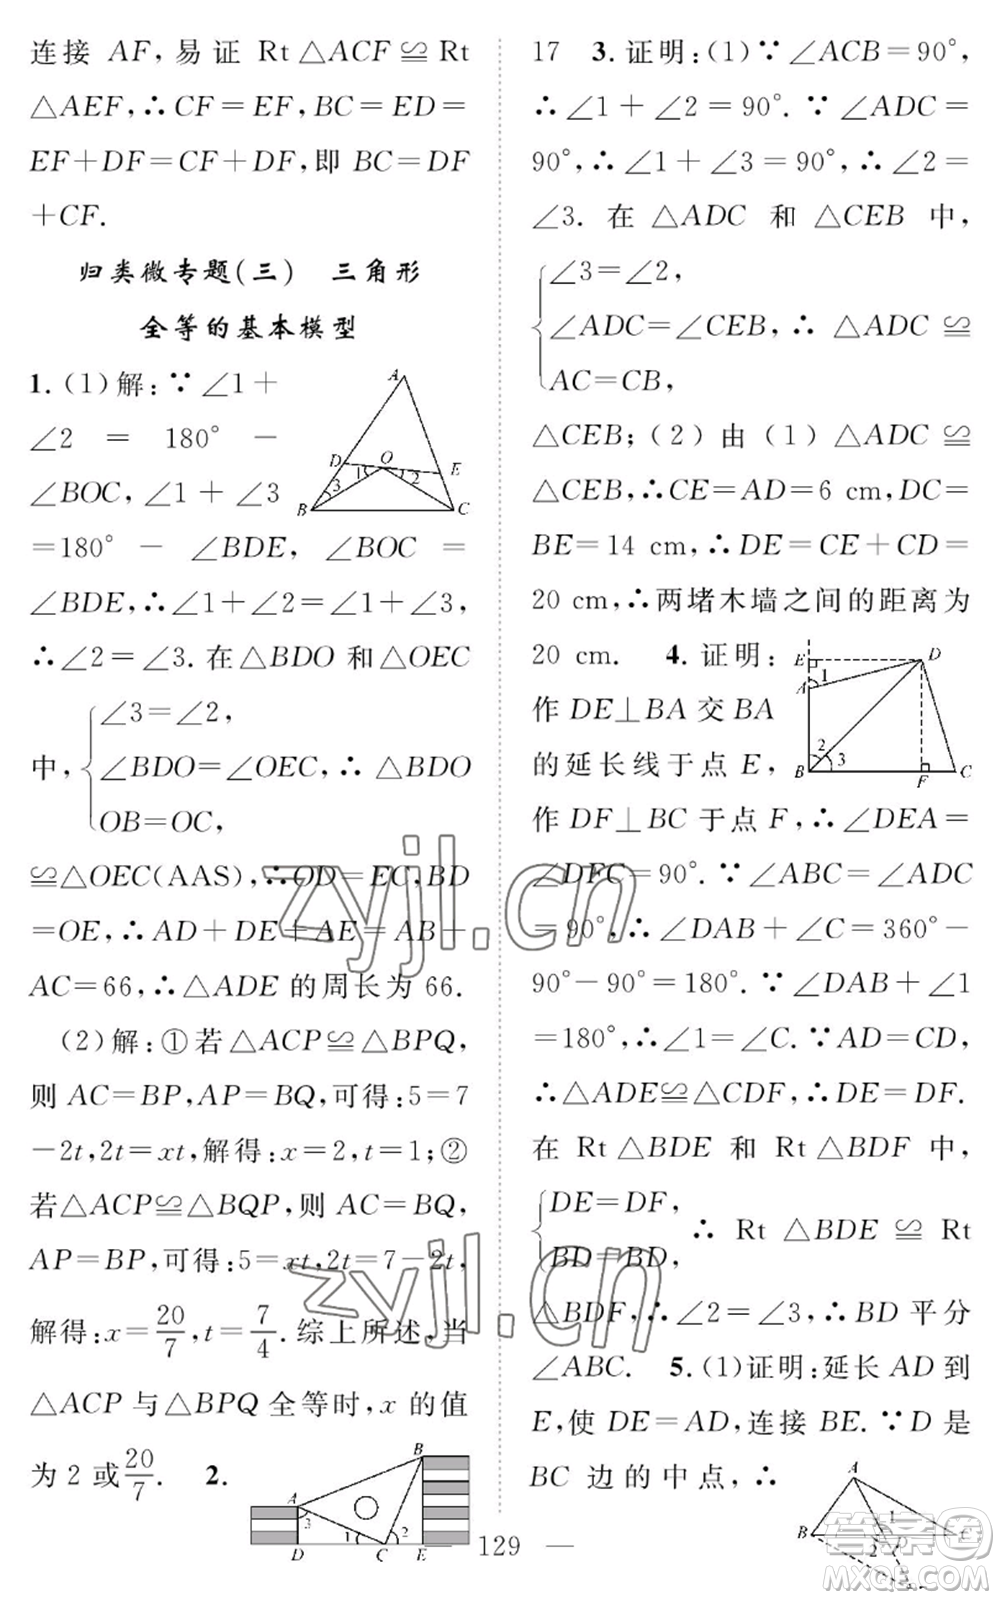 连接 AF,易证 Rt△ACF≌Rt
△AEF,∴CF=EF,BC=ED=
EF+DF=CF+DF,即 BC=DF
+CF.
归类微专题(三) 三角形
全等的基本模型
1.(1)解:∵∠1+
∠2=180°-
∠BOC,∠1+∠3
=180°-∠BDE,∠BOC=
∠BDE,∴∠1+∠2=∠1+∠3,
∴∠2=∠3.在△BDO和△OEC
中,
∠3=∠2,
∠BDO=∠OEC,∴△BDO
OB=OC,
≌△OEC(AAS),∴OD=EC,BD
=OE,∴AD+DE+AE=AB+
AC=66,∴△ADE的周长为66.
(2)解:①若△ACP≌△BPQ,
则AC=BP,AP=BQ,可得:5=7
-2t,2t=xt,解得:x=2,t=1;②
若△ACP≌△BQP,则AC=BQ,
AP=BP,可得:5=xt,2t=7-2t,
解得:x=20/7,t=7/4.综上所述,当
△ACP与△BPQ全等时,x的值
为2或20/7. 2.
A
D
O
E
1
2
3
B
C
B
A
3
1
2
D
C
E
17 3.证明:(1)∵∠ACB=90°,
∴∠1+∠2=90°.∵∠ADC=
90°,∴∠1+∠3=90°,∴∠2=
∠3.在△ADC和△CEB中,
∠3=∠2,
∠ADC=∠CEB,∴△ADC≌
AC=CB,
△CEB;(2)由(1)△ADC≌
△CEB,∴CE=AD=6 cm,DC=
BE=14 cm,∴DE=CE+CD=
20 cm,∴两堵木墙之间的距离为
20 cm. 4.证明:
作DE⊥BA交BA
的延长线于点E,
作DF⊥BC于点F,∴∠DEA=
∠DFC=90°.∵∠ABC=∠ADC
=90°,∴∠DAB+∠C=360°-
90°-90°=180°.∵∠DAB+∠1
=180°,∴∠1=∠C.∵AD=CD,
∴△ADE≌△CDF,∴DE=DF.
在Rt△BDE和Rt△BDF中,
DE=DF,
BD=BD,
∴Rt△BDE≌Rt
△BDF,∴∠2=∠3,∴BD平分
∠ABC. 5.(1)证明:延长AD到
E,使DE=AD,连接BE.∵D是
BC边的中点,∴
E
D
A
1
2
3
B
F
C
A
1
B
2
D
C
129
zyjl.cn
zyjl.cn
答案圈